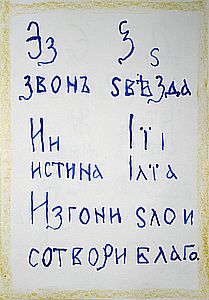 Зз Ѕ ѕ
звонъ ѕвѣзда
Ии Іїі
истина Ілїа
Изгони ѕло и
сотвори благо.